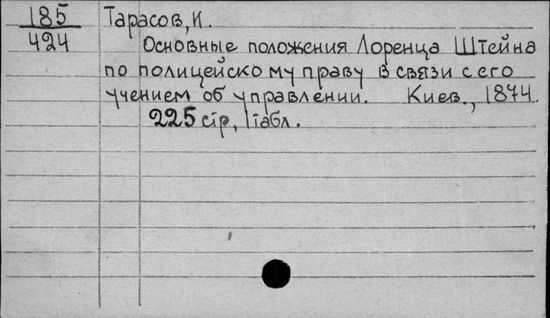 185
424
Тарасов, И.
Основные положения Лоренца Штейна
по полицейскому праву в связи с его
учением об управлении. Киев., 1874.
225 стр, 1 табл.